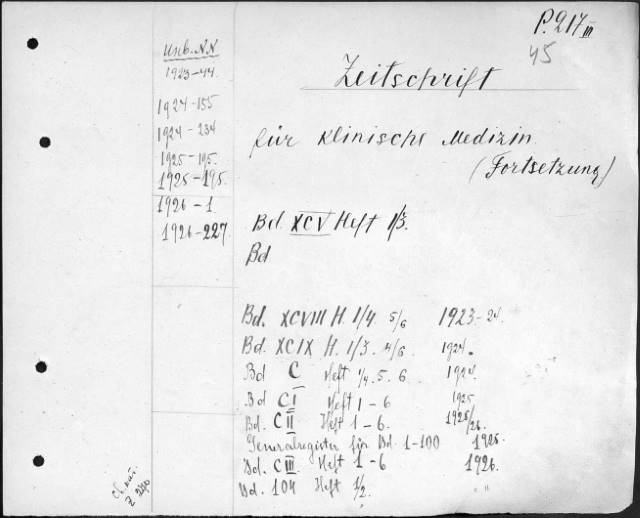 P. 217 III
45
Zeitschrift
für klinische Medizin
(Fortsetzung)
1923-44.
1924-155
1924-234
1925-195.
1925-195.
1926-1.
1926-227.
Bd. XCV Heft 1/3.
Bd
Bd. XCVIII H. 1/4. 5/6 1923-24.
Bd. XCIX H. 1/3. 4/6 1924.
Bd C Heft 1/4. 5. 6 1924.
Bd CI Heft 1-6 1925
Bd. CII Heft 1-6. 1925/26.
Generalregister für Bd. 1-100 1925.
Bd. CIII Heft 1-6 1926.
Bd. 104 Heft 1/2. "